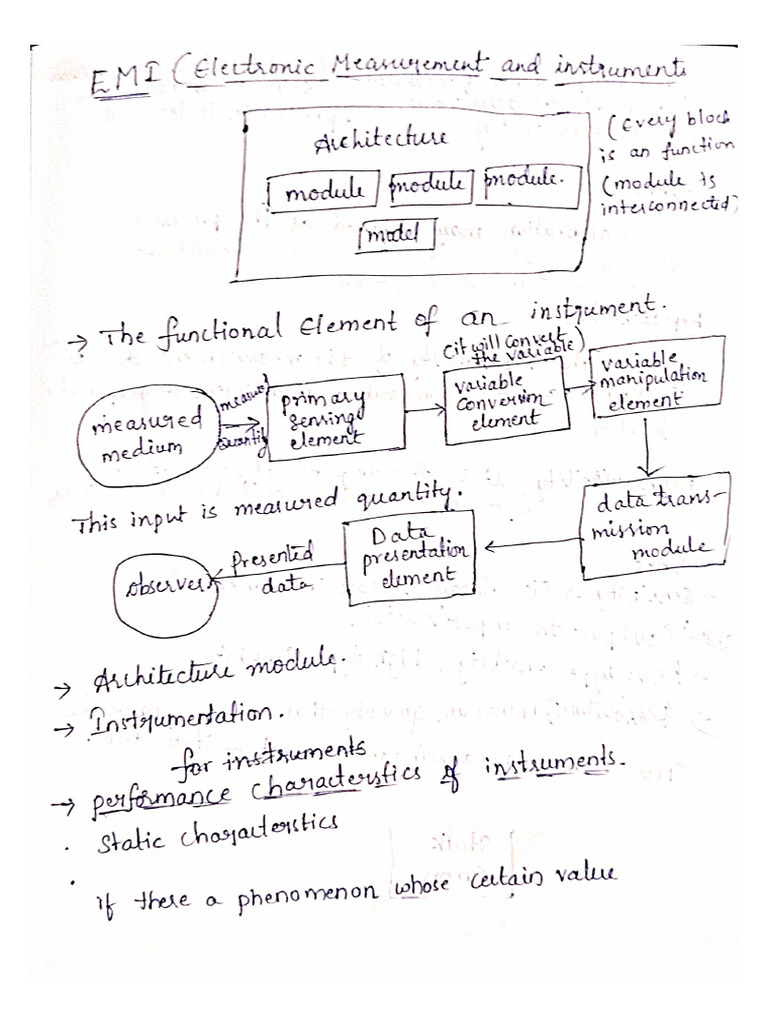 EMI (Electronic Measurement and instruments
Architecture
module module module.
model
(Every block
is an function
(module is
interconnected)
→ The functional Element of an instrument.
(it will convert
the variable)
measured
medium
measured
quantity
primary
sensing
element
variable
conversion
element
variable
manipulation
element
This input is measured quantity.
data trans-
mission
module
Data
presentation
element
Presented
data
observer
→ Architecture module.
→ Instrumentation.
for instruments
→ performance characterstics of instruments.
. Static characterstics
.
if there a phenomenon whose certain value